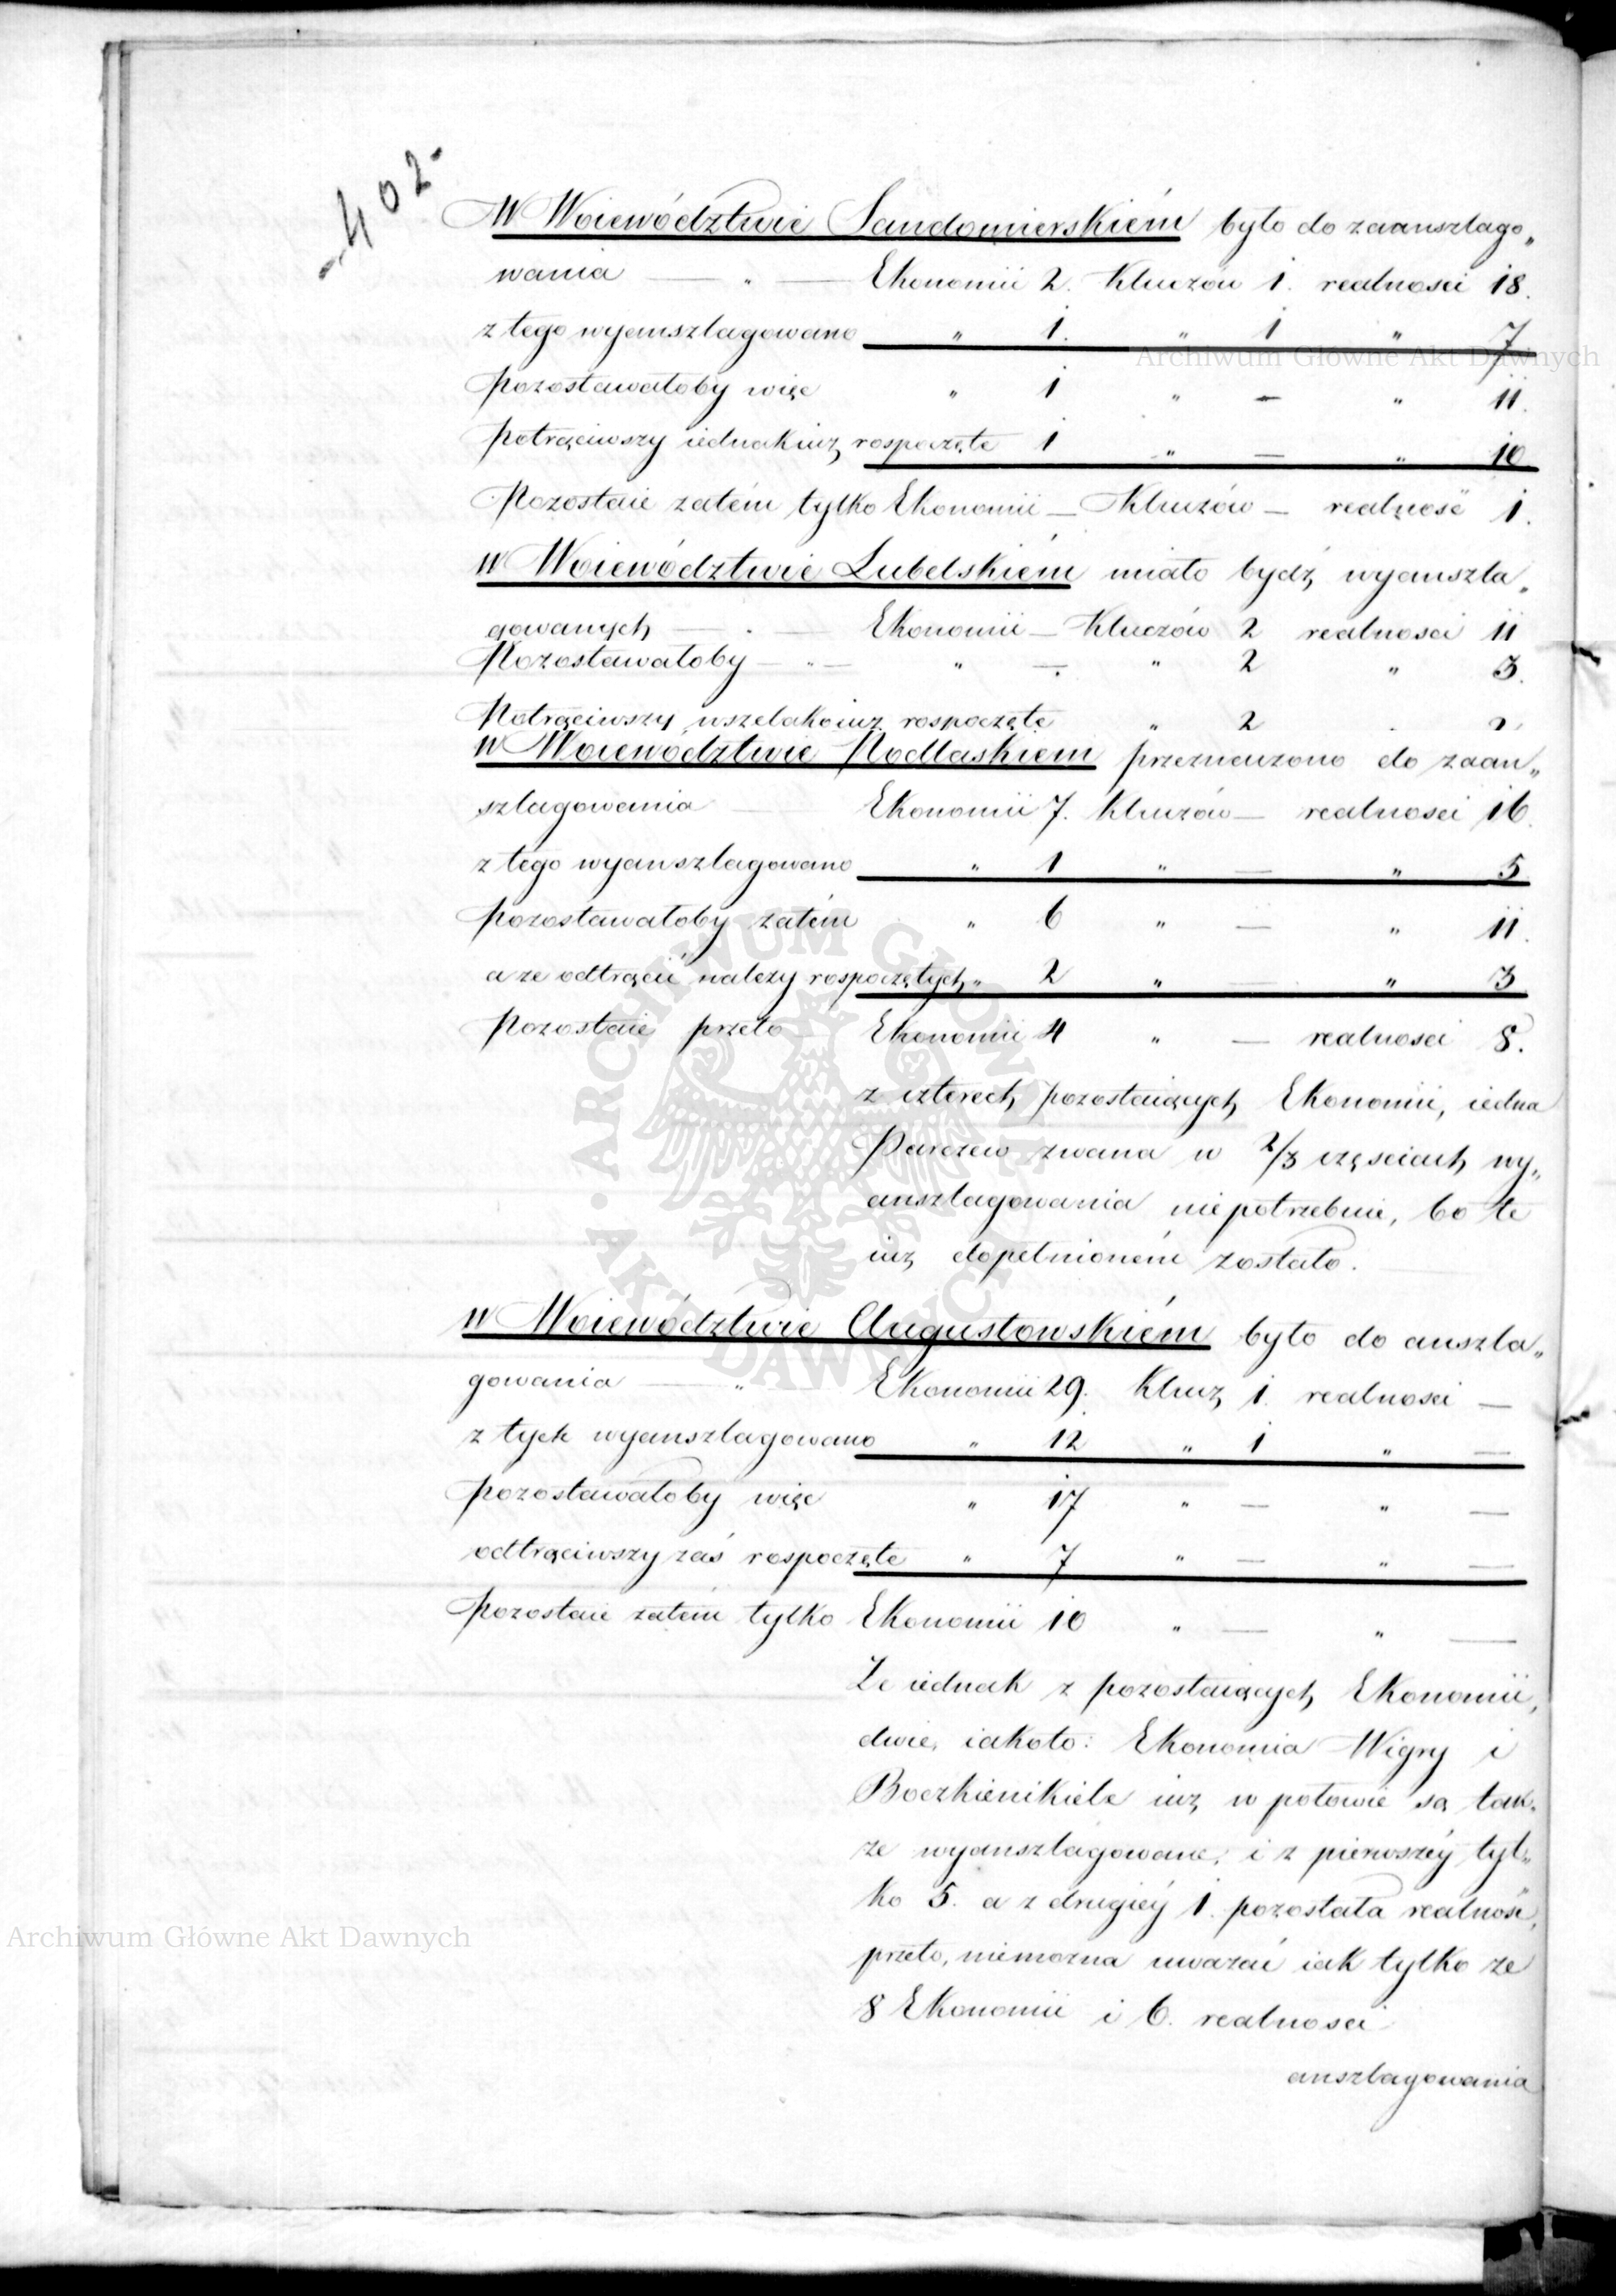 -402-
W Woiewództwie Sandomierskiém było do zaanszlago„
wania — „ — Ekonomii 2. Kluczów 1. realnosci 18.
z tego wyanszlagowano „ 1. „ 1 „ 7
pozostawałoby więc „ 1 „ — „ 11.
potrąciwszy iednakiuż rospoczęte 1 „ — „ 10
Pozostaie zatém tylko Ekonomii — Kluczów — realność 1.
w Woiewództwie Lubelskiém miało bydź wyanszla„
gowanych — . — Ekonomii — Kluczów 2 realnosci 11
Pozostawałoby — „ — „ — „ 2 „ 3.
Potrąciwszy wszelakoiuż rospoczęte „ 2 .
w Woiewództwie Podlaskiem przeznaczono do zaan„
szlagowania — Ekonomii 7. Kluczów — realnosci 16.
z tego wyanszlagowano „ 1 „ — „ 5
pozostawałoby zatém „ 6 „ — „ 11.
a ze odtrącić nalezy rospoczętych „ 2 „ — „ 3
Pozostaie przeto Ekonomii 4 „ — realnosci 8.
z czterech pozostaiących Ekonomii, iedna
Parczew zwana w 2/3 częsciach wy„
anszlagowania niepotrzebuie, bo te
iuż dopełnioném zostało.
w Woiewództwie Augustowskiém było do anszla„
gowania — „ Ekonomii 29. Klucz 1. realnosci —
z tych wyanszlagowano „ 12 „ 1 „ —
pozostawałoby więc „ 17 „ — „ —
odtrąciwszy zaś rospoczęte „ 7 „ — „ —
pozostaie zatém tylko Ekonomii 10 „ — „ —
Ze iednak z pozostaiących Ekonomii,
dwie, iakoto: Ekonomia Wigry i
iuż w połowie są tak„
ze wyanszlagowane, i z pierwszéy tyl„
ko 5. a z drugiéy 1. pozostała realność,
przeto, niemozna uwazać iak tylko ze
8 Ekonomii i 6. realnosci
anszlagowania
Archiwum Główne Akt Dawnych
ARCHIWUM GŁÓWNE AKT DAWNYCH
Archiwum Główne Akt Dawnych